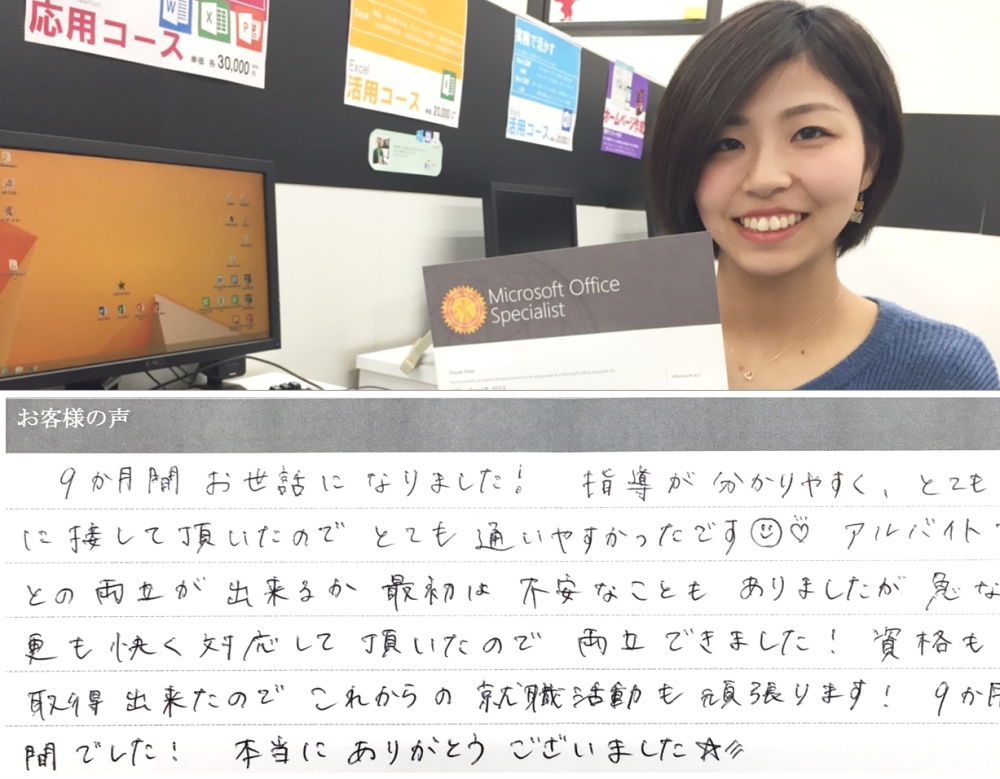 応用コース
単価 各 30,000
Excel
活用コース
20,000
実務で活かす
活用コース
ホームページ作成
Microsoft Office
Specialist
お客様の声
9か月間 お世話に なりました! 指導が 分かりやすく、とても
に 接して 頂いたので とても 通いやすかったです☺♡ アルバイト
との 両立が 出来るか 最初は 不安なことも ありましたが 急な
更も 快く 対応して 頂いたので 両立 できました! 資格も
取得 出来たので これからの 就職活動も 頑張ります! 9か月
間でした! 本当に ありがとう ございました☆彡